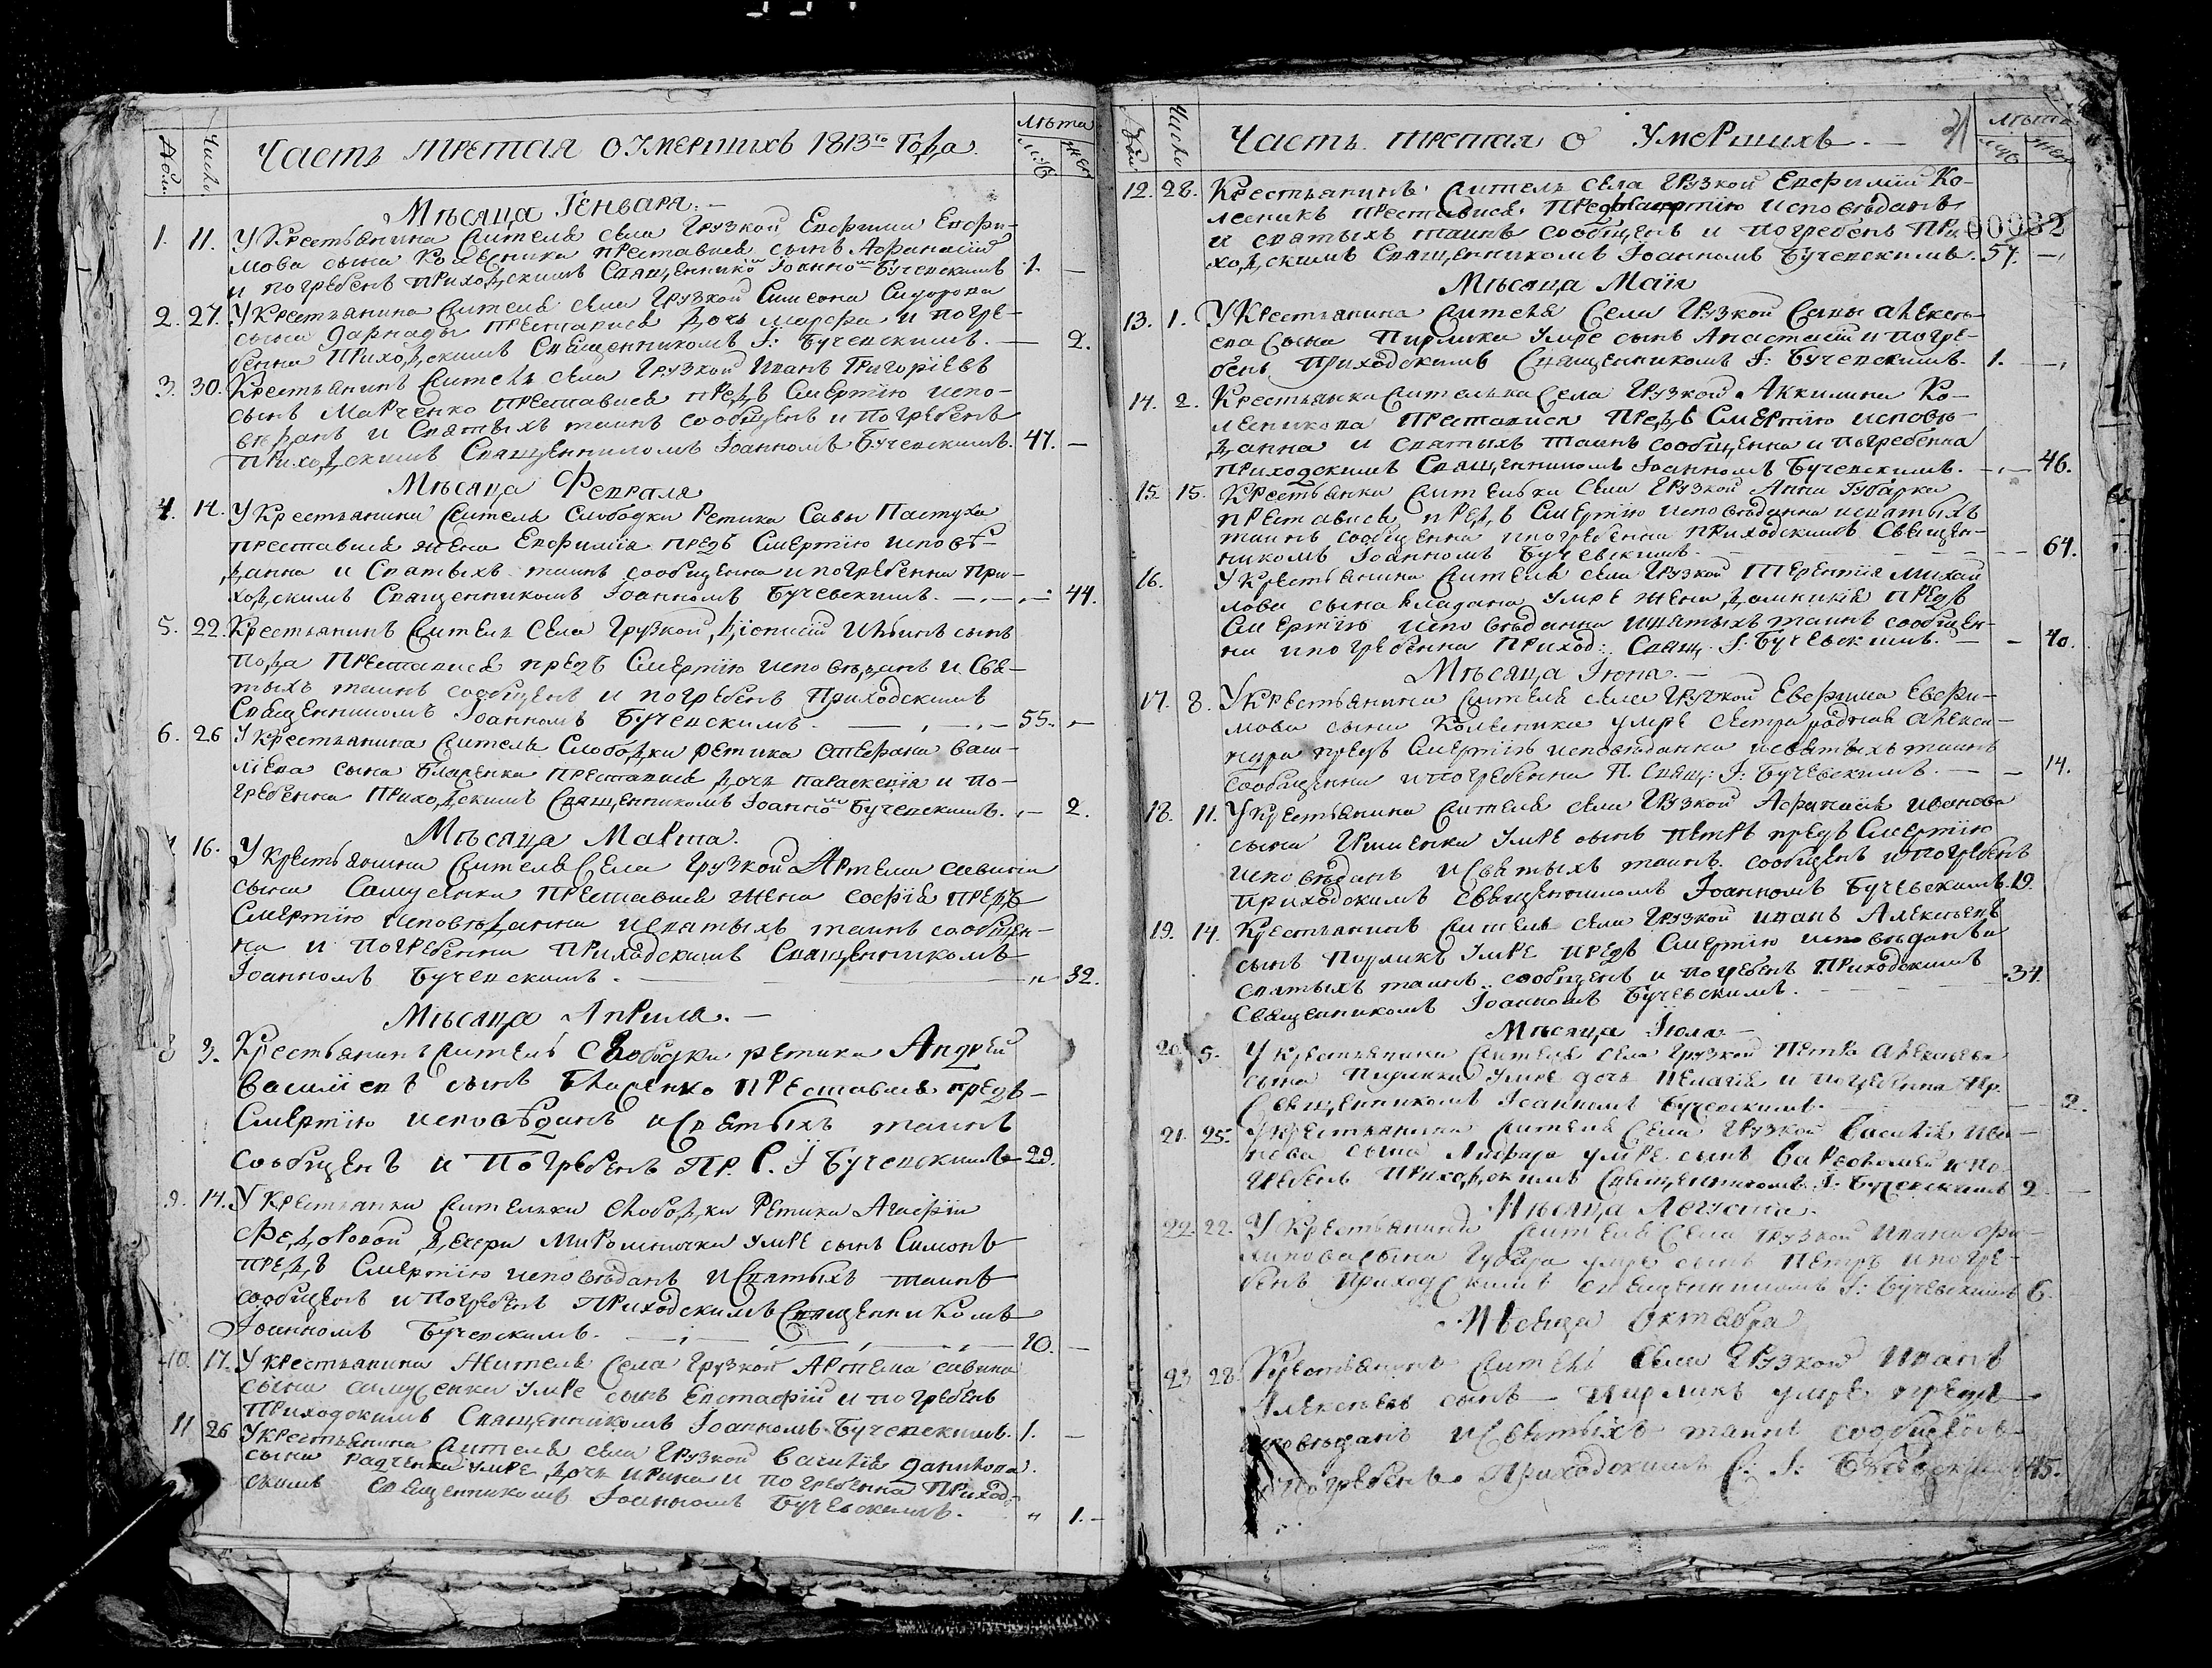 Часть третая о умершихъ 1813го года.
лѣта
Число
Мѣсяца Генваря. —
1. 11. У Крестьянина жителя села Грузкой Евфима Евфи-
мова сына Колесника преставися сынъ Афанасій
и погребенъ приходскимъ Священникомъ Іоанномъ Бучевскимъ 1. —
2. 27. У Крестьянина жителя села Грузкой Симеона Сидорова
сына преставися дочь Марфа и погре-
бенна приходскимъ Священникомъ І: Бучевскимъ. — 2.
3. 30. Крестьянинъ житель села Грузкой Иванъ Григоріевъ
сынъ Марченко преставися предъ Смертію испо-
вѣданъ и Святыхъ таинъ сообщенъ и погребенъ
приходскимъ Священникомъ Іоанномъ Бучевскимъ. 47. —
Мѣсяца Февраля
4. 14. У Крестьянина жителя Слободки Ретика Савы Пастуха
преставися жена Евфимія предъ Смертію исповѣ-
данна и Святыхъ таинъ сообщенна и погребенна при-
ходскимъ Священникомъ Іоанномъ Бучевскимъ. — 44.
5. 22. Крестьянинъ житель села Грузкой Діонисій сынъ
преставися предъ Смертію исповѣданъ и Свя-
тыхъ таинъ сообщенъ и погребенъ Приходскимъ
Священникомъ Іоанномъ Бучевскимъ. — 55. —
6. 26 У крестьянина жителя Слободки ретика Стефана Васи-
лієва сына преставися дочь Параскевія и по-
гребенна приходскимъ Священникомъ Іоанномъ Бучевскимъ. — 2.
Мѣсяца Марта.
16. У крестьянина жителя Села Грузкой Артема Савина
сына Самусенка преставися жена Софія предъ
Смертію исповѣданна и святыхъ таинъ сообщен-
на и погребенна приходскимъ Священникомъ
Іоанномъ Бучевскимъ. — 32.
Мѣсяца Априля. —
8 3. Крестьянинъ житель Слободки ретика Андрей
Василіевъ сынъ преставися предъ
Смертію исповѣданъ и Святыхъ таинъ
сообщенъ и Погребенъ Пр. С. І Бучевскимъ 29.
9. 14. У Крестьянки жительки Слободки Ретика Агафіи
Федоровой дочери умре сынъ Симонъ
предъ Смертію исповѣданъ и Святыхъ таинъ
сообщенъ и погребенъ приходскимъ Священникомъ
Іоанномъ Бучевскимъ. — 10. —
10. 17. У крестьянина Жителя Села Грузкой Артема Савина
сына самусенка умре сынъ Евстафій и погребенъ
Приходскимъ Священникомъ Іоанномъ Бучевскимъ. 1. —
11 26 У крестьянина жителя села Грузкой Василія Данилова
сына Радченка умре дочь Ирина и погребенна Приход-
скимъ Священникомъ Іоанномъ Бучевскимъ. 1. —
Часть третая о Умершихъ. —
31
Число
лѣта
00032
12. 28. Крестьянинъ житель села Грузкой Евфимій Ко-
лесникъ преставися предъ смертію исповѣданъ
и святыхъ таинъ сообщенъ и погребенъ при-
ходскимъ Священникомъ Іоанномъ Бучевскимъ. 57. —
Мѣсяца Маія
13. 1. У Крестьянина жителя Села Грузкой Савы Алексѣ-
ева сына Пирлика умре сынъ Анастасій и погре-
бенъ приходскимъ Священникомъ І: Бучевскимъ. 1. —
14. 2. Крестьянка жителька Села Грузкой Аккилина Ко-
лесникова преставися предъ Смертію исповѣ-
данна и святыхъ таинъ сообщенна и погребенна
приходскимъ Священникомъ Іоанномъ Бучевскимъ. — 46.
15. 15. Крестьянка жителька села Грузкой Анна Губарка
преставися предъ Смертію исповѣданна и святыхъ
таинъ сообщенна и погребенна приходскимъ Священ-
никомъ Іоанномъ Бучевскимъ. — 64.
16. У крестьянина жителя села Грузкой Терентія Михай
лова сына умре жена Домникія предъ
Смертію исповѣданна и святыхъ таинъ сообщен-
на и погребенна приход: Свящ. І: Бучевскимъ. — 40.
Мѣсяца Іюня. —
17. 8. У крестьянина жителя села Грузкой Евфима Евфи-
мова сына Колесника умре сестра родная Алекса-
ндра предъ Смертію исповѣданна и святыхъ таинъ
сообщенна и погребенна П. Свящ: І: Бучевскимъ. — 14.
18. 11. У крестьянина жителя села Грузкой Афанасія Иванова
сына Гришенка умре сынъ Петръ предъ Смертію
исповѣданъ и Святыхъ таинъ сообщенъ и погребенъ
приходскимъ Священникомъ Іоанномъ Бучевскимъ. 19.
19. 14. Крестьянинъ житель села Грузкой Иванъ Алексѣевъ
сынъ Пирликъ умре предъ Смертію исповѣданъ и
святыхъ таинъ сообщенъ и погребенъ приходскимъ 34.
Священникомъ Іоанномъ Бучевскимъ.
Мѣсяца Іюля —
20. 5. У крестьянина жителя села Грузкой Петра Алексѣева
сына Пирлика умре дочь Пелагія и погребенна Пр.
Священникомъ Іоанномъ Бучевскимъ. — 2.
21. 25. У крестьянина жителя Села Грузкой Василія Ива-
нова сына умре сынъ Варфоломей и по-
гребенъ приходскимъ Священникомъ І: Бучевскимъ 2. —
Мѣсяца Августа.
22. 22. У Крестьянина жителя Села Грузкой Ивана Фи-
липова сына Губара умре сынъ Петръ и погре-
бенъ Приходскимъ Священникомъ І: Бучевскимъ 6.
Мѣсяца Октабра
23 28. Крестьянинъ житель Села Грузкой Иванъ
Алексѣевъ сынъ — Пирликъ умре предъ
исповѣданъ и Святыхъ таинъ сообщенъ
и погребенъ Приходскимъ С: І: 45.